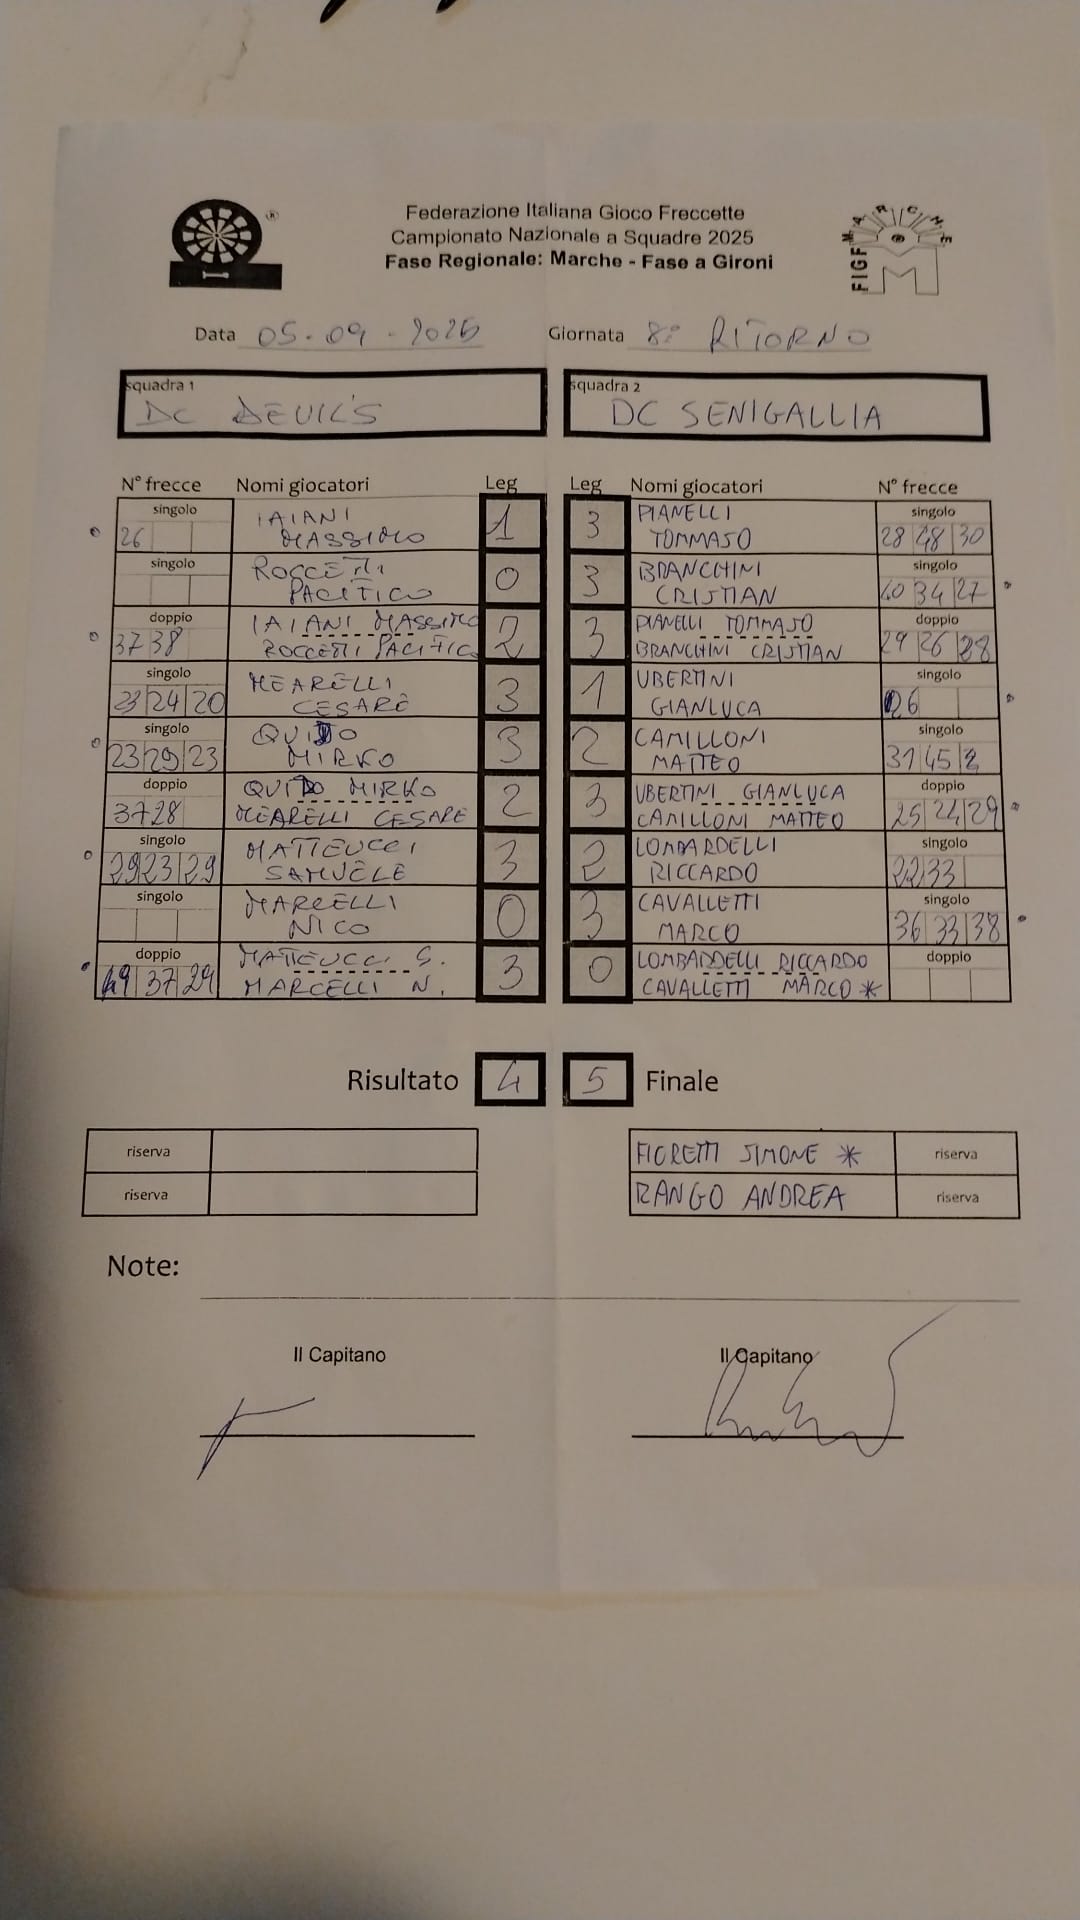 Federazione Italiana Gioco Freccette
Campionato Nazionale a Squadre 2025
Fase Regionale: Marche - Fase a Gironi
FIGF MARCHE
M
Data 05-09-2025 Giornata 8° RITORNO
squadra 1 DC DEVIL'S squadra 2 DC SENIGALLIA
N° frecce Nomi giocatori Leg Leg Nomi giocatori N° frecce
singolo 26 IAIANI MASSIMO 1 3 PIANELLI TOMMASO singolo 28 28 30
singolo ROCCETTI PACIFICO 0 3 BRANCHINI CRISTIAN singolo 40 34 27
doppio 37 38 IAIANI MASSIMO ROCCETTI PACIFICO 2 3 PIANELLI TOMMASO BRANCHINI CRISTIAN doppio 29 26 28
singolo 23 24 20 MEARELLI CESARE 3 1 UBERTINI GIANLUCA singolo 26
singolo 23 29 23 MIRKO 3 2 CAMILLONI MATTEO singolo 31 45
doppio 37 28 MIRKO MEARELLI CESARE 2 3 UBERTINI GIANLUCA CAMILLONI MATTEO doppio 25 24 29
singolo 29 23 29 MATTEUCCI SAMUELE 3 2 LOMBARDELLI RICCARDO singolo 22 33
singolo MARCELLI NICO 0 3 CAVALLETTI MARCO singolo 36 33 38
doppio 49 37 29 MATTEUCCI S. MARCELLI N. 3 0 LOMBARDELLI RICCARDO CAVALLETTI MARCO * doppio
Risultato 4 5 Finale
riserva FIORETTI SIMONE * riserva
riserva RANGO ANDREA riserva
Note:
Il Capitano Il Capitano